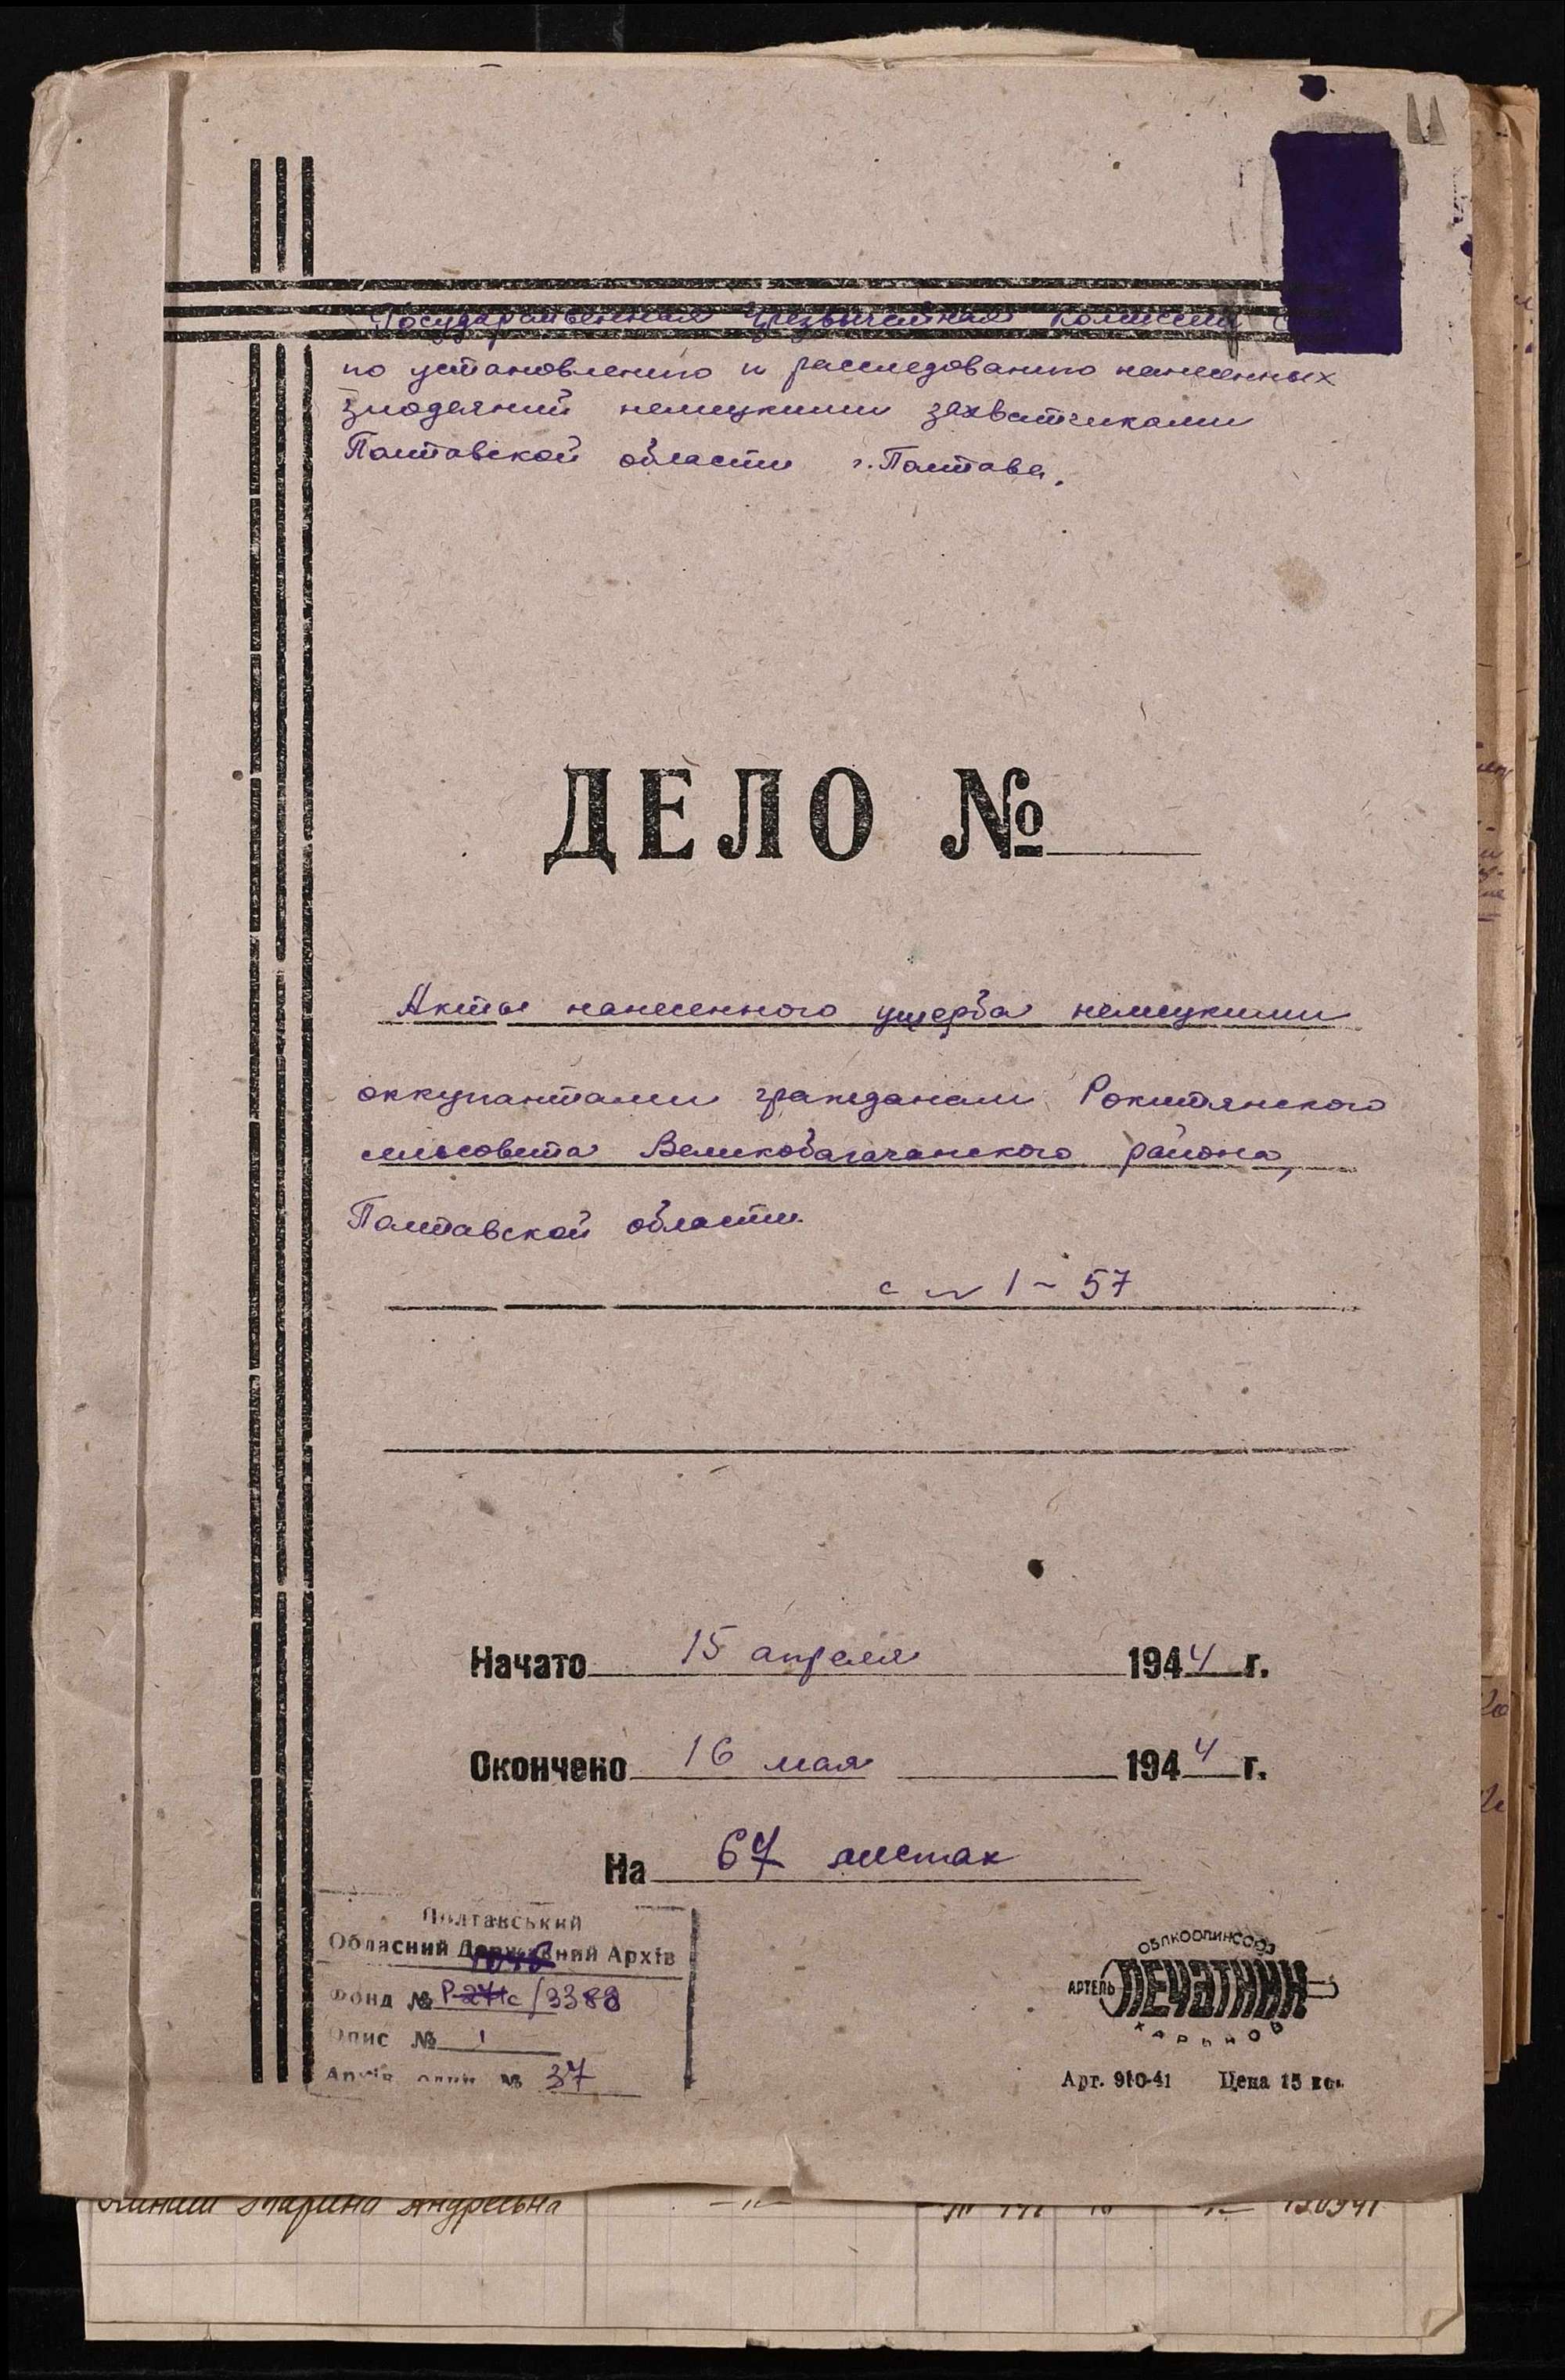 Государственная Чрезвычайная Комиссия
по установлению и расследованию нанесенных
злодеяний немецкими захватчиками
Полтавской области г. Полтава.
ДЕЛО №
Акты нанесенного ущерба немецкими
оккупантами гражданам Рокитянского
сельсовета Великобагачанского района,
Полтавской области.
с № 1 - 57
Начато 15 апреля 1944 г.
Окончено 16 мая 1944 г.
На 67 листах
Полтавський
Обласний Державний Архів
Фонд № Р-2741с/3388
Опис № 1
№ 37
ОБЛКООПИНСОЮЗ
АРТЕЛЬ ПЕЧАТНИК
ХАРЬКОВ
Арт. 910-41 Цена 15 коп.
Андреевна